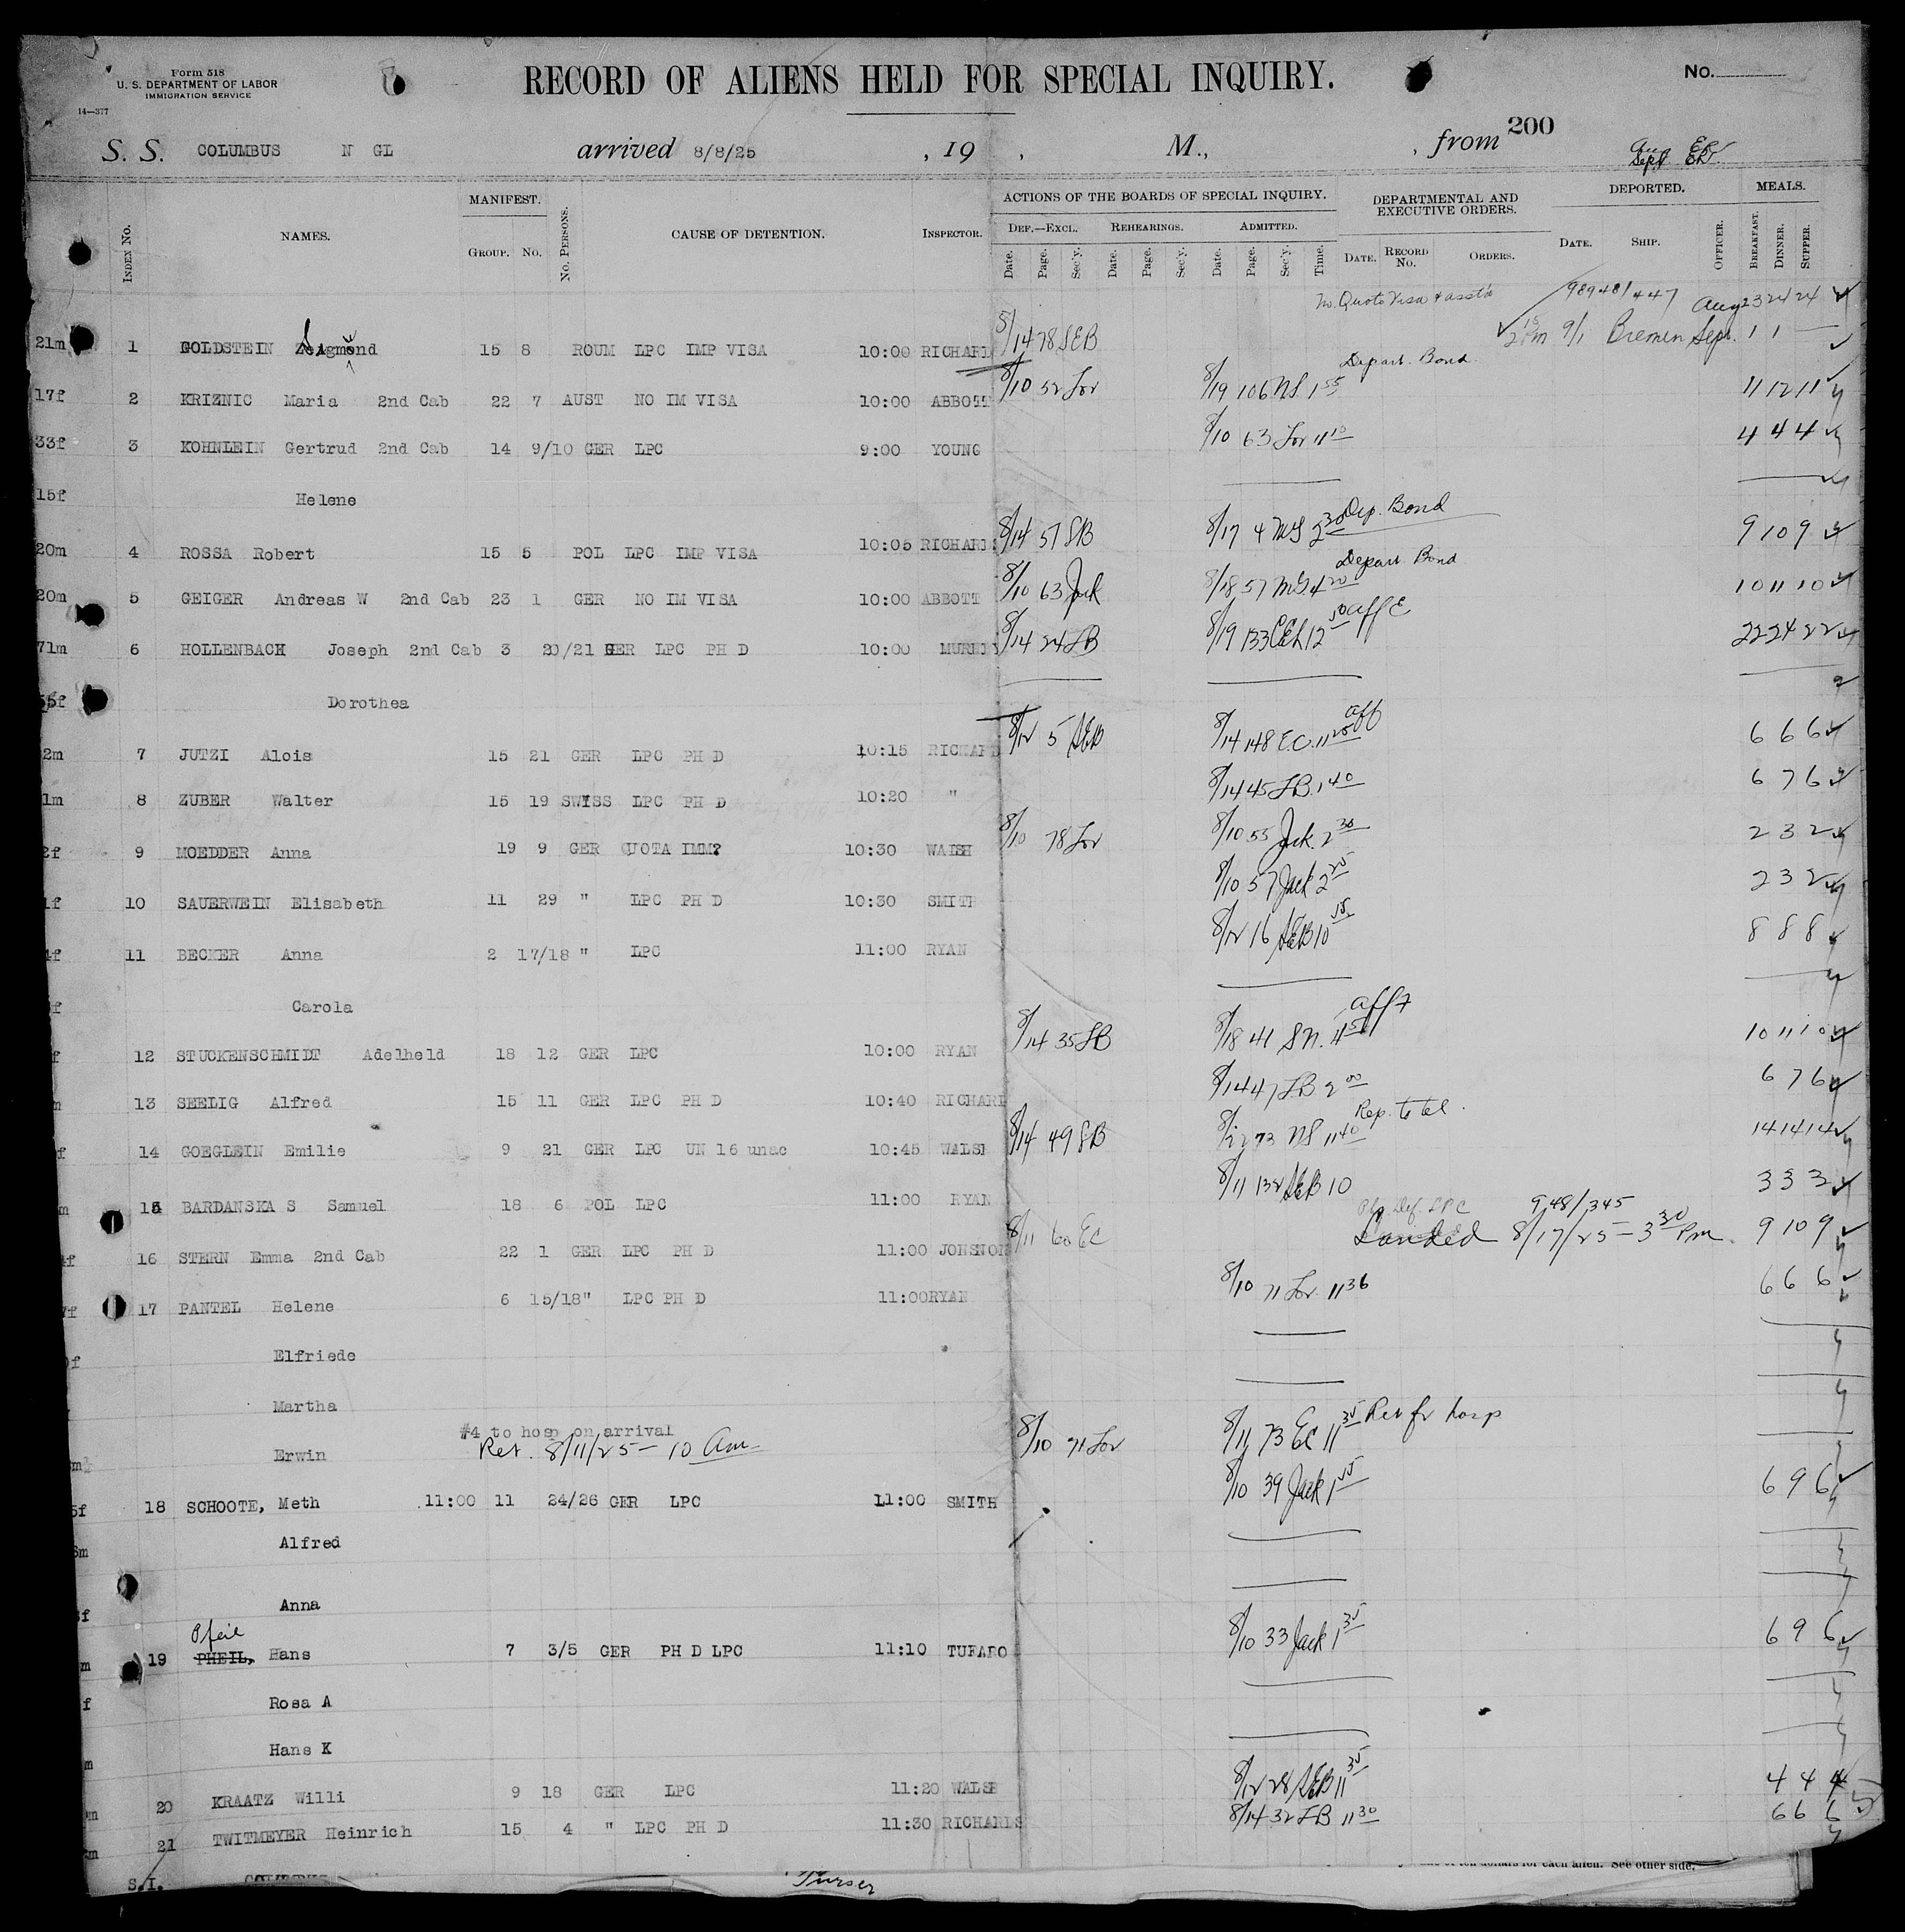 Form 518
U. S. DEPARTMENT OF LABOR
IMMIGRATION SERVICE
14—377
RECORD OF ALIENS HELD FOR SPECIAL INQUIRY.
No.
S. S. COLUMBUS N GL arrived 8/8/25 , 19 , M., , from 200
Aug
Sept
MANIFEST. ACTIONS OF THE BOARDS OF SPECIAL INQUIRY. DEPARTMENTAL AND EXECUTIVE ORDERS. DEPORTED. MEALS.
Index No. NAMES. GROUP. NO. No. Persons. CAUSE OF DETENTION. INSPECTOR. DEF.—EXCL. REHEARINGS. ADMITTED.
Date. Page. Sec'y. Date. Page. Sec'y. Date. Page. Sec'y. Time. DATE. RECORD NO. ORDERS. DATE. SHIP. OFFICER. BREAKFAST. DINNER. SUPPER.
No. Quota Visa Aug 23 24 24
21m 1 GOLDSTEIN 15 8 ROUM LPC IMP VISA 10:00 RICHARD 8/14 78 SEB 9/1 Bremen Sept. 1 1 —
Depart. Bond
17f 2 KRIZNIC Maria 2nd Cab 22 7 AUST NO IM VISA 10:00 ABBOTT 8/10 52 Lor 8/19 106 NS 1 55 11 12 11
33f 3 KOHNLEIN Gertrud 2nd Cab 14 9/10 GER LPC 9:00 YOUNG 8/10 63 Lor 11 10 4 4 4
15f Helene
20m 4 ROSSA Robert 15 5 POL LPC IMP VISA 10:05 RICHARDS 8/14 57 SB 8/17 4 MS 2 30 Dep. Bond 9 10 9
Depart. Bond
20m 5 GEIGER Andreas W 2nd Cab 23 1 GER NO IM VISA 10:00 ABBOTT 8/10 63 Jack 8/18 57 MS 4 20 10 11 10
71m 6 HOLLENBACH Joseph 2nd Cab 3 20/21 GER LPC PH D 10:00 8/14 24 LB 8/19 133 12 50 aff 22 24 22
Dorothea
2m 7 JUTZI Alois 15 21 GER LPC PH D 10:15 RICHARD 8/12 5 SEB 8/14 148 E.C. 11 20 aff 6 6 6
1m 8 ZUBER Walter 15 19 SWISS LPC PH D 10:20 " 8/14 45 LB 1 40 6 7 6
2f 9 MOEDDER Anna 19 9 GER QUOTA IMM? 10:30 WALSH 8/10 78 Lor 8/10 55 Jack 2 30 2 3 2
1f 10 SAUERWEIN Elisabeth 11 29 " LPC PH D 10:30 SMITH 8/10 57 Jack 2 25 2 3 2
4f 11 BECKER Anna 2 17/18 " LPC 11:00 RYAN 8/12 16 SEB 10 55 8 8 8
f Carola
f 12 STUCKENSCHMIDT Adelheld 18 12 GER LPC 10:00 RYAN 8/14 35 LB 8/18 41 SN. 4 50 10 11 10
m 13 SEELIG Alfred 15 11 GER LPC PH D 10:40 RICHARD 8/14 47 LB 2 00 6 7 6
Rep. to tel.
f 14 GOEGLEIN Emilie 9 21 GER LPC UN 16 unac 10:45 WALSH 8/14 49 SB 73 NS 11 40 14 14 14
m 15 BARDANSKA S Samuel 18 6 POL LPC 11:00 RYAN 8/11 132 SEB 10 3 3 3
f 16 STERN Emma 2nd Cab 22 1 GER LPC PH D 11:00 JOHSNON 8/11 60 EC Landed 8/17/25 — 3 30 Pm 9 10 9
7f 17 PANTEL Helene 6 15/18" LPC PH D 11:00RYAN 8/10 71 Lor. 11 36 6 6 6
f Elfriede
Martha
#4 to hosp on arrival
m Erwin Ret. 8/11/25 — 10 Am 8/10 71 Lor 8/11 73 EC 11 35 Ret fr hosp
5f 18 SCHOOTE, Meth 11:00 11 24/26 GER LPC 11:00 SMITH 8/10 39 Jack 1 55 6 9 6
m Alfred
f Anna
Pfeil
m 19 PHEIL, Hans 7 3/5 GER PH D LPC 11:10 TUFARO 8/10 33 Jack 1 35 6 9 6
f Rosa A
m Hans K
m 20 KRAATZ Willi 9 18 GER LPC 11:20 WALSH 8/12 28 SEB 11 35 4 4 4
m 21 TWITMEYER Heinrich 15 4 " LPC PH D 11:30 RICHARDS 8/14 32 LB 11 30 6 6 6
S.I. Purser
for each alien. See other side.